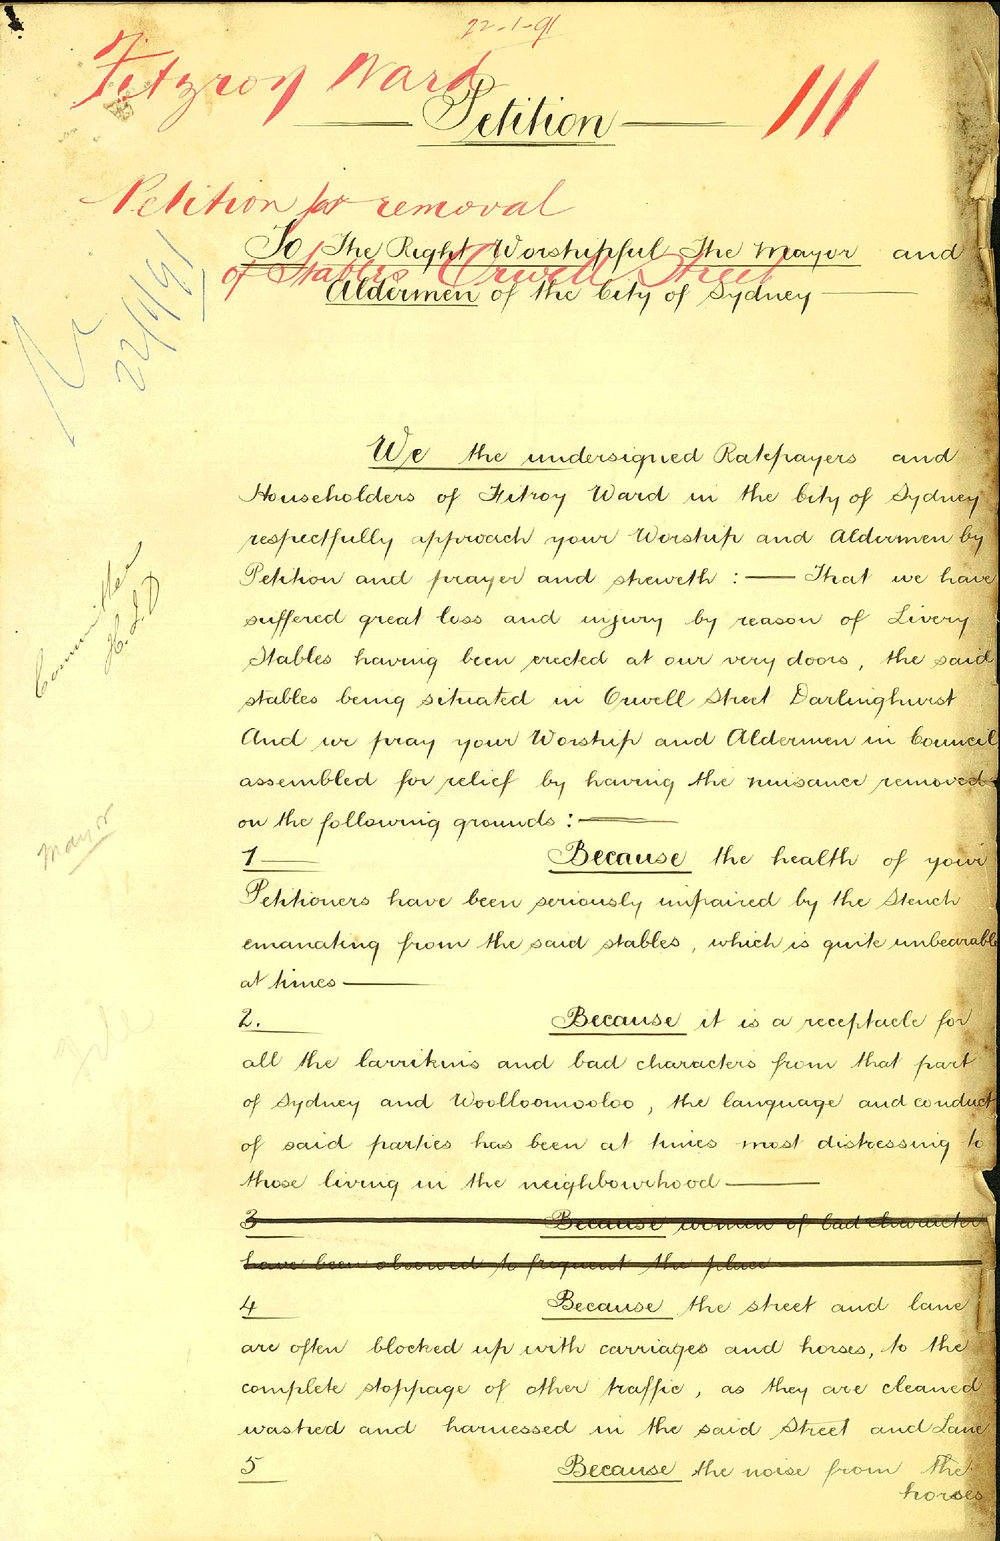 22-1-91
Fitzroy Ward
Petition
111
Petition for removal
To The Right Worshipful The Mayor and
of Stables Orwell Street
Aldermen of the City of Sydney
22/1/91
We the undersigned Ratepayers and
Householders of Fitzroy Ward in the City of Sydney
respectfully approach your Worship and Aldermen by
Petition and prayer and sheweth :— That we have
suffered great loss and injury by reason of Livery
Stables having been erected at our very doors, the said
stables being situated in Orwell Street Darlinghurst
And we pray your Worship and Aldermen in Council
assembled for relief by having the nuisance removed
on the following grounds :—
Committee
H.L.D
Mayor
1 Because the health of your
Petitioners have been seriously impaired by the Stench
emanating from the said stables, which is quite unbearable
at times —
File
2. Because it is a receptacle for
all the larrikins and bad characters from that part
of Sydney and Woolloomooloo, the language and conduct
of said parties has been at times most distressing to
those living in the neighbourhood —
3 Because women of bad character
have been observed to frequent the place
4 Because the street and lane
are often blocked up with carriages and horses, to the
complete stoppage of other traffic, as they are cleaned
washed and harnessed in the said Street and Lane
5 Because the noise from the
horses